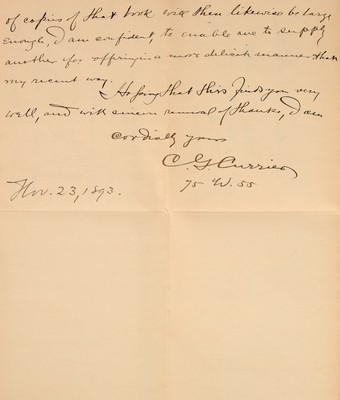 of copies of that book will then likewise be large
enough, I am confident, to enable me to supply
another for offering in a more delicate manner than
my recent way.
Hoping that this finds you very
well, and with sincere renewal of thanks, I am
Cordially yours
C. G. Currier
75 W. 55
Nov. 23, 1893.